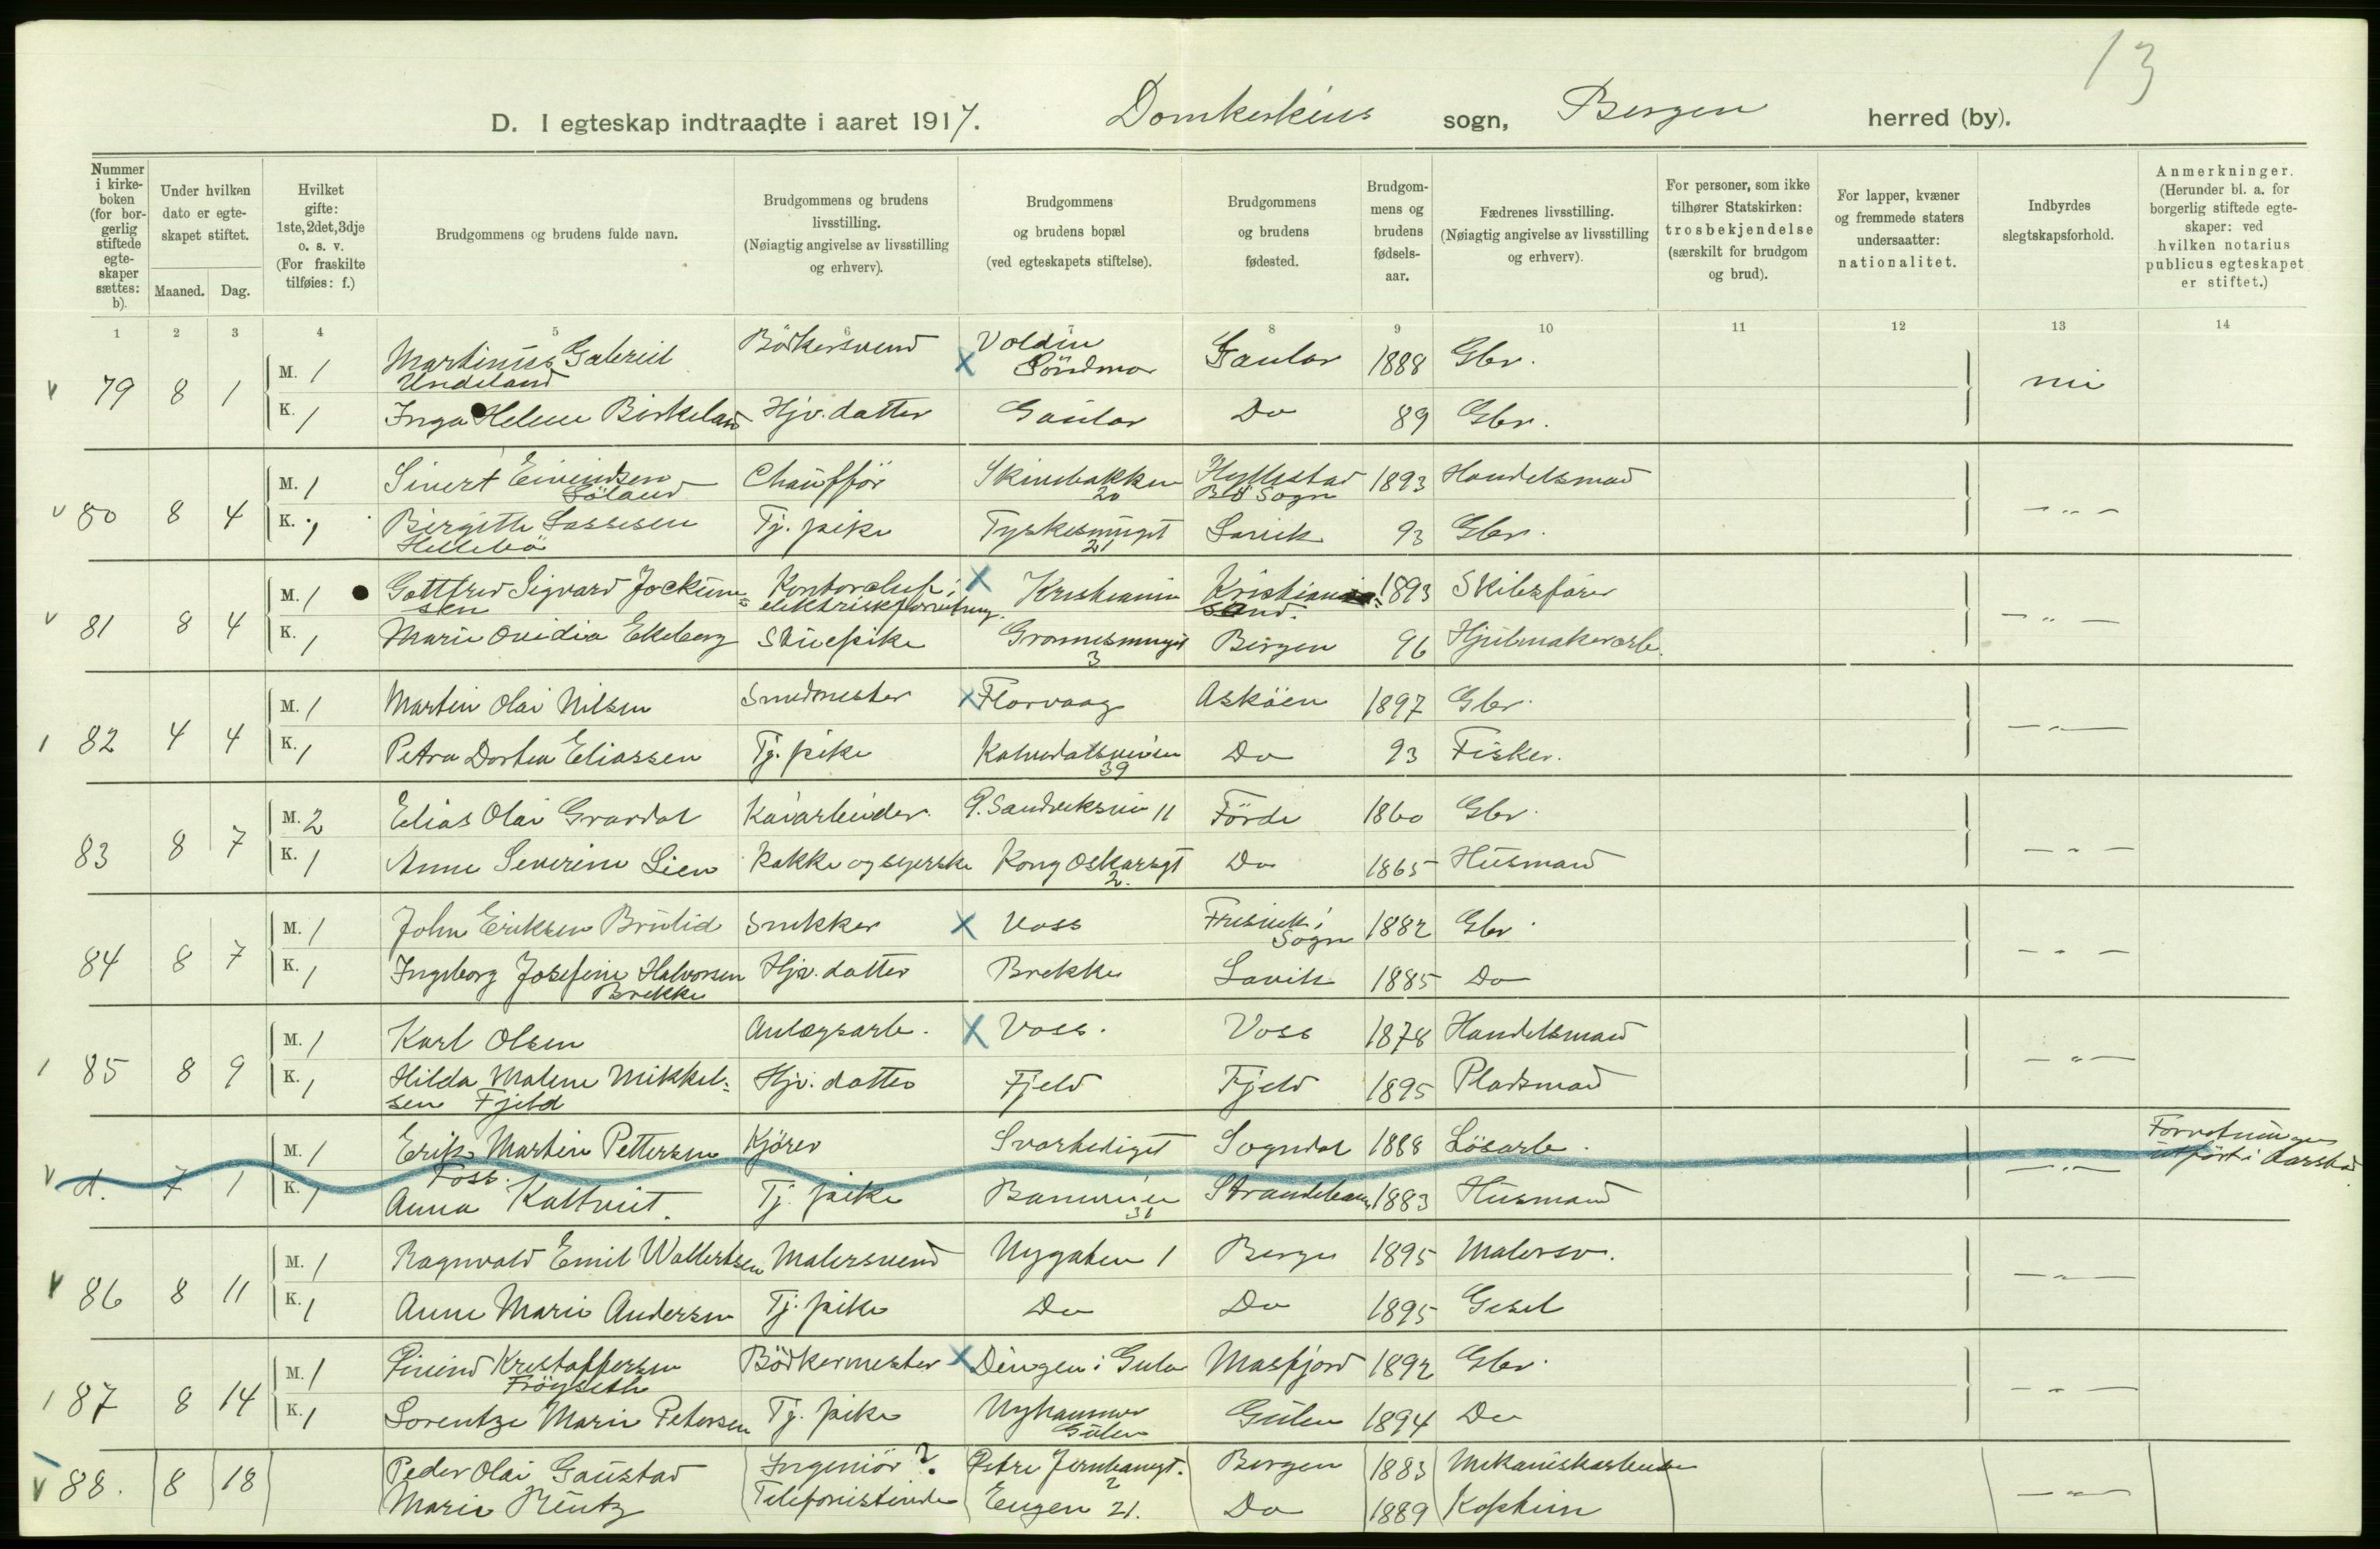 13
D. I egteskap indtraadte i aaret 1917. Domkirkens sogn, Bergen herred (by).
Nummer i kirkeboken (for borgerlig stiftede egteskaper sættes: b).
Under hvilken dato er egteskapet stiftet.
Maaned. Dag.
Hvilket gifte: 1ste, 2det, 3dje o. s. v. (For fraskilte tilføies: f.)
Brudgommens og brudens fulde navn.
Brudgommens og brudens livsstilling. (Nøiagtig angivelse av livsstilling og erhverv).
Brudgommens og brudens bopæl (ved egteskapets stiftelse).
Brudgommens og brudens fødested.
Brudgommens og brudens fødselsaar.
Fædrenes livsstilling. (Nøiagtig angivelse av livsstilling og erhverv).
For personer, som ikke tilhører Statskirken: trosbekjendelse (særskilt for brudgom og brud).
For lapper, kvæner og fremmede staters undersaatter: nationalitet.
Indbyrdes slegtskapsforhold.
Anmerkninger. (Herunder bl. a. for borgerlig stiftede egteskaper: ved hvilken notarius publicus egteskapet er stiftet.)
1 2 3 4 5 6 7 8 9 10 11 12 13 14
v 79 8 1 M. 1 Martinus Gabriel Undeland Bödkersvend x Volden Söndmør Gaular 1888 Gbr.
K. 1 Inga Helene Birkeland Hjv. datter Gaular Do 89 Gbr.
v 80 8 4 M. 1 Sivert Eivindsen Söland Chaufför Skivebakken 20 Hyllestad Bö Sogn 1893 Handelsmand — " —
K. 1 Birgitte Lassesen Hellebö Tj. pike Tyskesmuget 21 Lavik 93 Gbr.
v 81 8 4 M. 1 Gottfred Sigvard Jockumsen Kontorchef i elektriskforretning x Kristiania Kristiansand. 1893 Skibsfører — " —
K. 1 Marie Ovidia Ekeberg Stuepike Gronnesmuget 3 Bergen 96 Hjulmakerarb.
1 82 4 4 M. 1 Martin Olai Nilsen Smedmester x Florvaag Askøen 1897 Gbr. — " —
K. 1 Petra Dortea Eliassen Tj. pike Kalvedalsveien 39 Do 93 Fisker.
83 8 7 M. 2 Elias Olai Gravdal Kaiarbeider. P. Sandviksvei 11 Förde 1860 Gbr. — " —
K. 1 Anne Severine Lien Kakke og syerske Kong Oskarsgt 2. Do 1865 Husmand
84 8 7 M. 1 John Eriksen Brulid Snekker x Voss Fresvik i Sogn 1882 Gbr. — " —
K. 1 Ingeborg Josefine Halvorsen Brekke Hjv. datter Brekke Lavik 1885 Do
1 85 8 9 M. 1 Karl Olsen Anlægsarb. x Voss. Voss 1878 Handelsmand — " —
K. 1 Hilda Malene Mikkelsen Fjeld Hjv. datter Fjeld Fjeld 1895 Pladsmand
v A. 7 1 M. 1 Erik Martin Pettersen Foss. Kjörer Svarhediget Sogndal 1888 Lösarb. — " — Forretningen utført i Aarstad
K. 1 Anna Kaltveit. Tj. pike Baneveien 31 Strandebarm 1883 Husmand
v 86 8 11 M. 1 Ragnvald Emil Wallertsen Malersvend Nygaten 1 Bergen 1895 Malersv. — " —
K. 1 Anne Marie Andersen Tj. pike Do Do 1895 Gesel
1 87 8 14 M. 1 Eivind Kristoffersen Fröyseth Bödkermester x Dingen i Gulen Masfjord 1892 Gbr. — " —
K. 1 Lorentze Marie Petersen Tj. pike Nyhammer Gulen Gulen 1894 Do
v 88. 8 18 Peder Olai Gaustad Ingeniör ? Östre Jernbanegt. 2 Bergen 1883 Mekaniskarbeider — " —
Marie Rentz Telefonistinde Engen 21. Do 1889 Kopthein